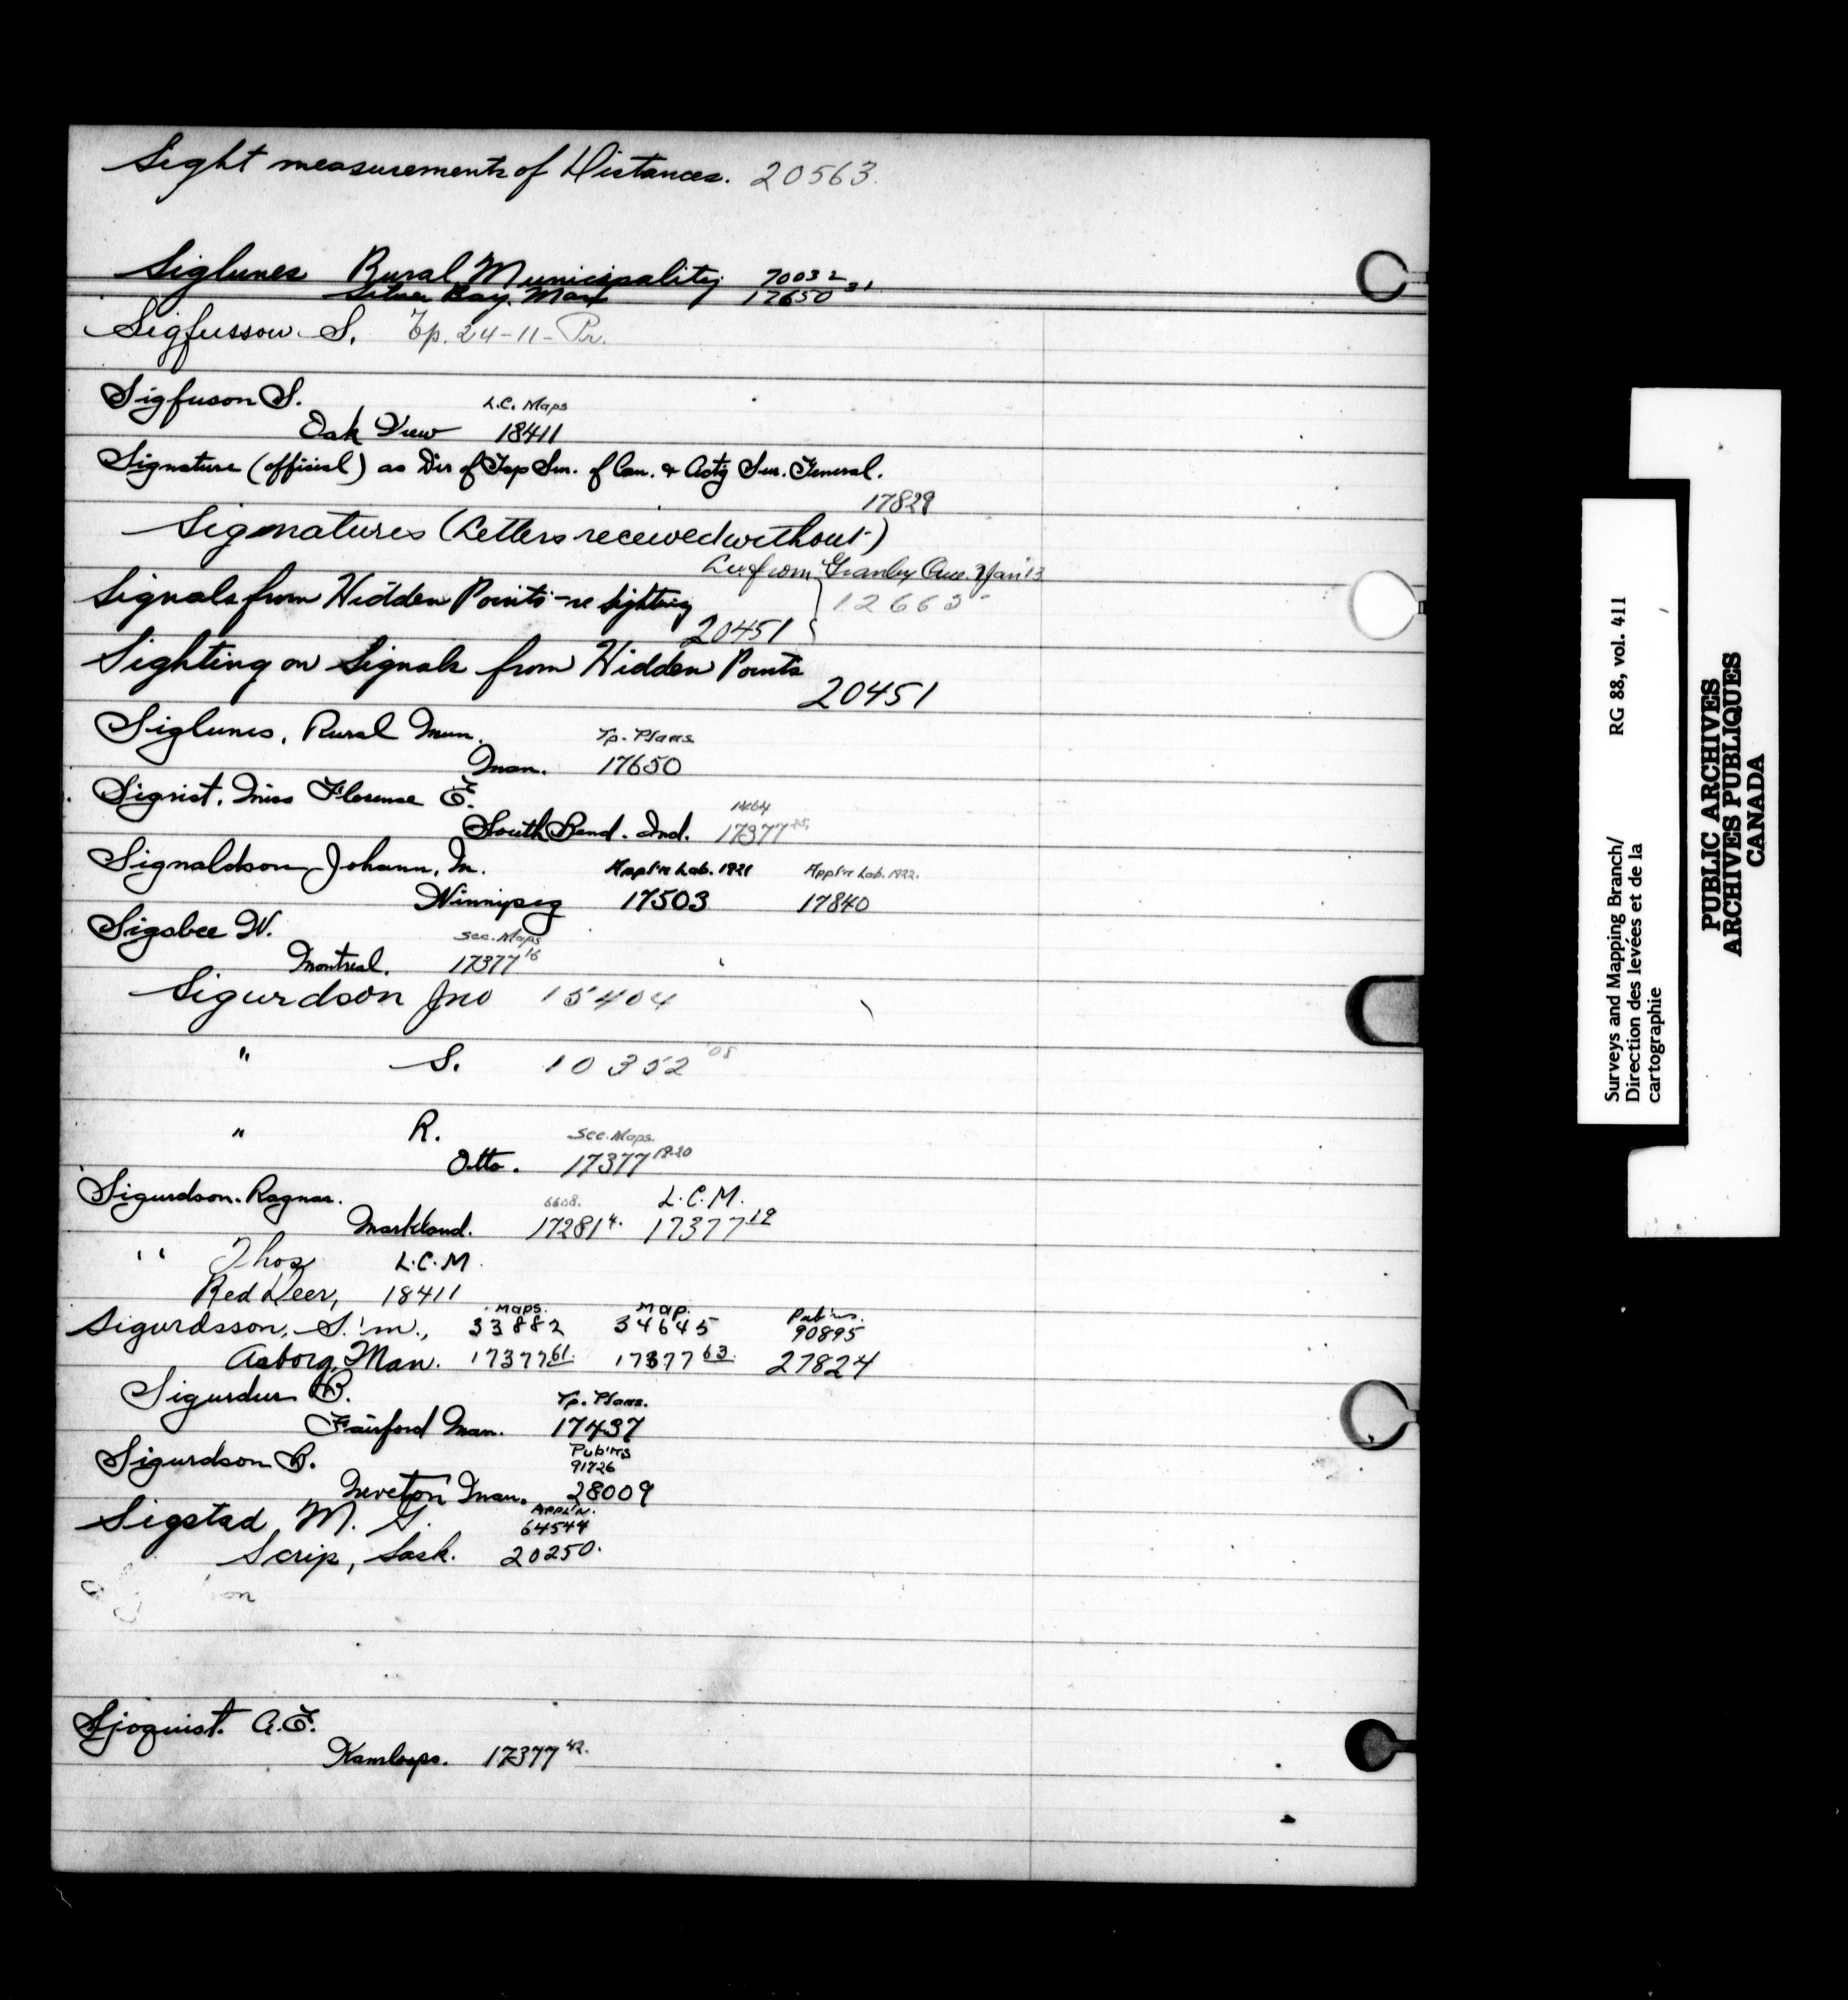 Sight measurements of Distances. 20563.
Siglunes Rural Municipality 70032
Silver Bay, Man 17650 31
Sigfusson S. Tp. 24-11-Pr.
Sigfuson S. L.C. Maps
Oak View 18411
Signature (official) as Dir of Top Sur. of Can. & Actg Sur. General.
17829
Signatures (Letters received without)
from Granby Que. Jan 13
Signals from Hidden Points - re sighting 12663
20451
Sighting on Signals from Hidden Points
20451
Siglunes, Rural Mun. Tp. Plans
Man. 17650
Sigrist, Miss Florence E. 1464
South Bend. Ind. 17377 25.
Signaldson Johann, M. Appl'n Lab. 1921 Appl'n Lab. 1922.
Winnipeg 17503 17840
Sigsbee W. Sec. Maps
Montreal. 17377 16
Sigurdson Jno 15404
" S. 10352 '08
" R. Sec. Maps.
Otto. 17377 19-20
Sigurdson. Ragnar. 6608. L.C.M.
Markland. 17281 4. 17377 19
" Thos L.C.M.
Red Deer, 18411
Maps. Map. Pub'ns.
Sigurdsson, S. M., 33882 34645 90895
Arborg, Man. 17377 61. 17377 63. 27824
Sigurdur B. Tp. Plans.
Fairford Man. 17437
Sigurdson B. Pub'ns
91726
Man. 28009
Sigstad M. G. Appl'n.
64544
Scrip, Sask. 20250.
on
Sjoquist. A.E.
Kamloops. 17377 42.
Surveys and Mapping Branch/ RG 88, vol. 411
Direction des levées et de la
cartographie
PUBLIC ARCHIVES
ARCHIVES PUBLIQUES
CANADA